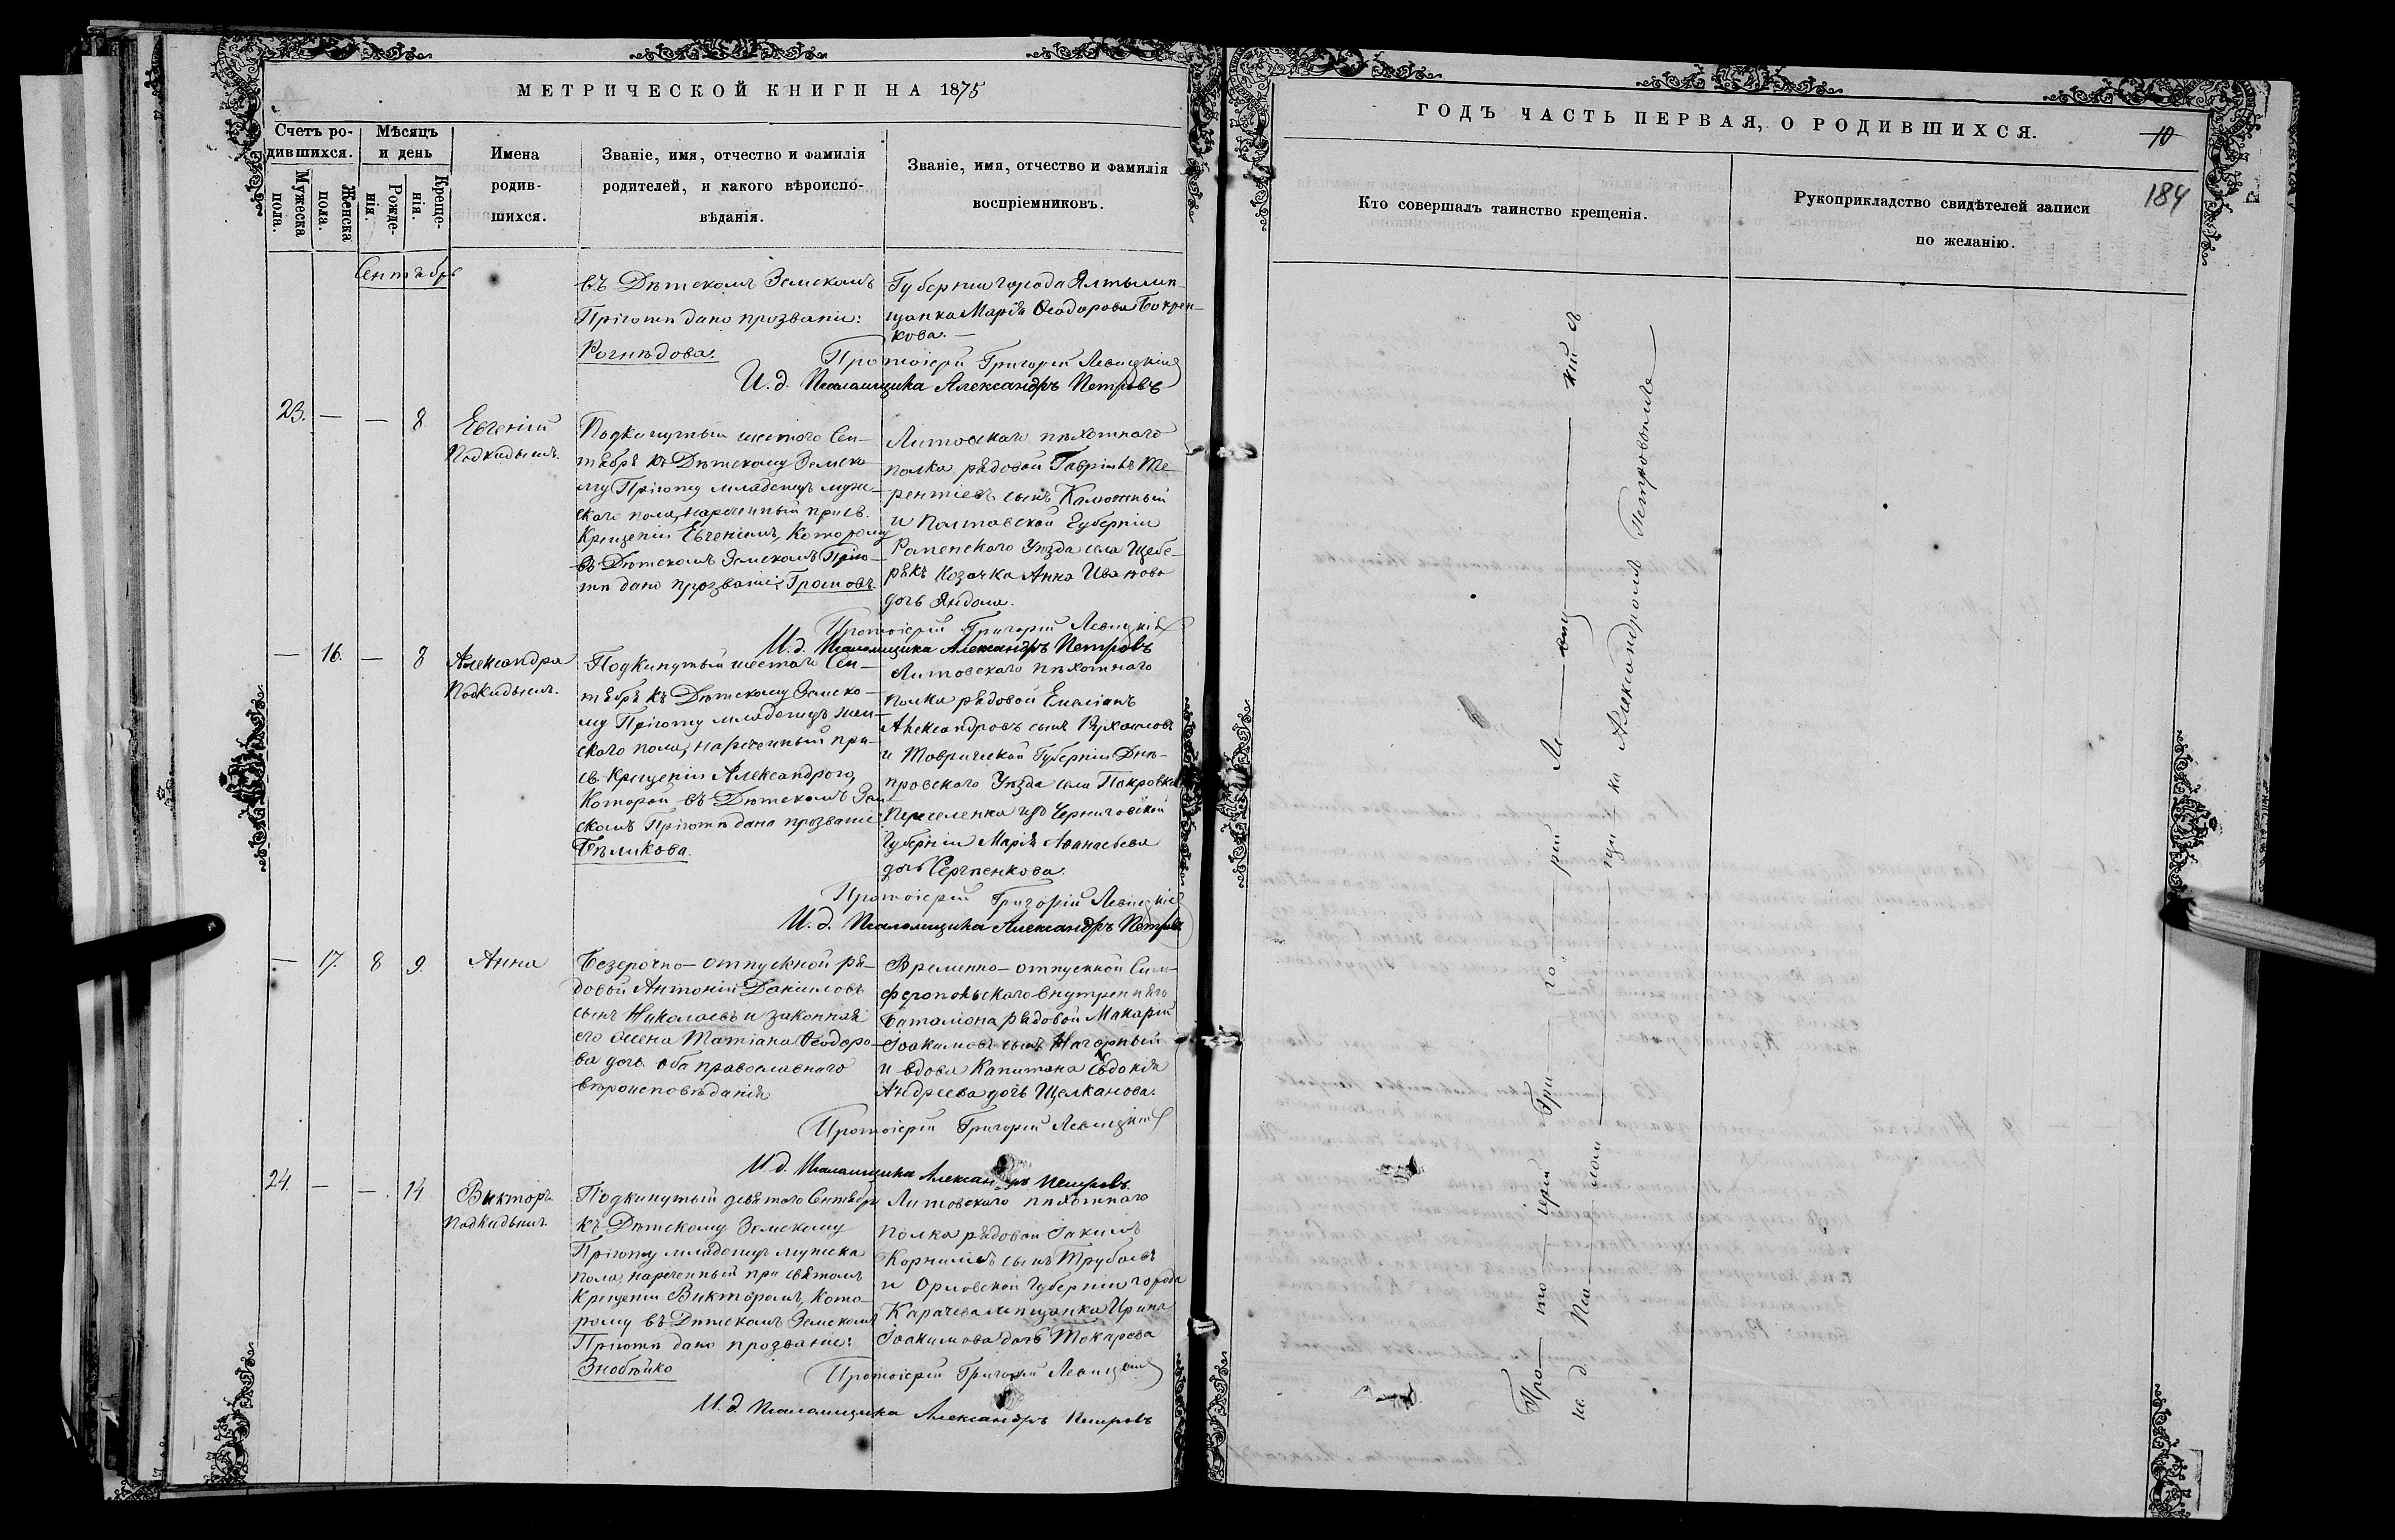 МЕТРИЧЕСКОЙ КНИГИ НА 1875
Счетъ ро-
дившихся.
Мужеска
пола.
Женска
пола.
Мѣсяцъ
и день
Рожде-
нія.
Креще-
нія.
Имена
родив-
шихся.
Званіе, имя, отчество и фамилія
родителей, и какого вѣроиспо-
вѣданія.
Званіе, имя, отчество и фамилія
воспріемниковъ.
Сентябрь
въ Дѣтскомъ Земскомъ
Пріютѣ дано прозваніе:
Рогнѣдова.
Губерніи города Ялты мѣ-
щанка Марія Ѳеодорова
кова. —
Протоіерей Григорій Левицкій
И. д. Псаломщика Александръ Петровъ
23. — — 8
Евгеній
Подкидышъ.
Подкинутый шестого Сен-
тября къ Дѣтскому Земско-
му Пріюту младенецъ муж-
ского пола, нареченный при св.
Крещеніи Евгеніемъ, которому
въ Дѣтскомъ Земскомъ Прію-
тѣ дано прозваніе: Громовъ.
Литовскаго пѣхотнаго
полка рядовой Гавріилъ Те-
рентіевъ сынъ
и Полтавской Губерніи
Роменскаго Уѣзда села
Козачка Анна Иванова
дочь
Протоіерей Григорій Левицкій
И. д. Псаломщика Александръ Петровъ
— 16. — 8
Александра
Подкидышъ.
Подкинутый шестаго Сен-
тября къ Дѣтскому Земско-
му Пріюту младенецъ жен-
скаго пола, нареченный при
св. Крещеніи Александрою,
Которой въ Дѣтскомъ Зем-
скомъ Пріютѣ дано прозваніе
Бѣликова.
Литовскаго пѣхотнаго
полка рядовой Емеліанъ
Александровъ сынъ
и Таврической Губерніи Днѣ-
провскаго Уѣзда села Покровки
Переселенка изъ Черниговской
Губерніи Марія Аѳанасьева
дочь Сергѣенкова.
Протоіерей Григорій Левицкій
И. д. Псаломщика Александръ Петровъ
— 17. 8 9.
Анна
Безсрочно-отпускной ря-
довой Антоній Даніиловъ
сынъ Николаевъ и законная
его жена Татіана Ѳеодоро-
ва дочь оба православнаго
вѣроисповѣданія
Временно-отпускной Сим-
феропольскаго внутренняго
Баталіона рядовой Макарій
Іоакимовъ сынъ Нагорный
и вдова Капитана Евдокія
Андреева дочь Щелканова.
Протоіерей Григорій Левицкій
И. д. Псаломщика Александръ Петровъ.
24. — — 14
Викторъ
Подкидышъ
Подкинутый девятого Сентября
къ Дѣтскому Земскому
Пріюту младенецъ мужска
пола, нареченный при святомъ
Крещеніи Викторомъ, кото-
рому въ Дѣтскомъ Земскомъ
Пріютѣ дано прозваніе:
Литовскаго пѣхотнаго
полка рядовой Іакимъ
Корниліевъ сынъ Трубаевъ
и Орловской Губерніи города
Карачева мѣщанка Ирина
Іоакимова дочь Токарева
Протоіерей Григорій Левицкій
И. д. Псаломщика Александръ Петровъ
ГОДЪ ЧАСТЬ ПЕРВАЯ, О РОДИВШИХСЯ.
10
184
Кто совершалъ таинство крещенія.
Рукоприкладство свидѣтелей записи
по желанію.
Про — то — іерей Гри — го — рій Ле — виц — кій съ
и. д. Пса — лом — щи — ка Александромъ Петровымъ